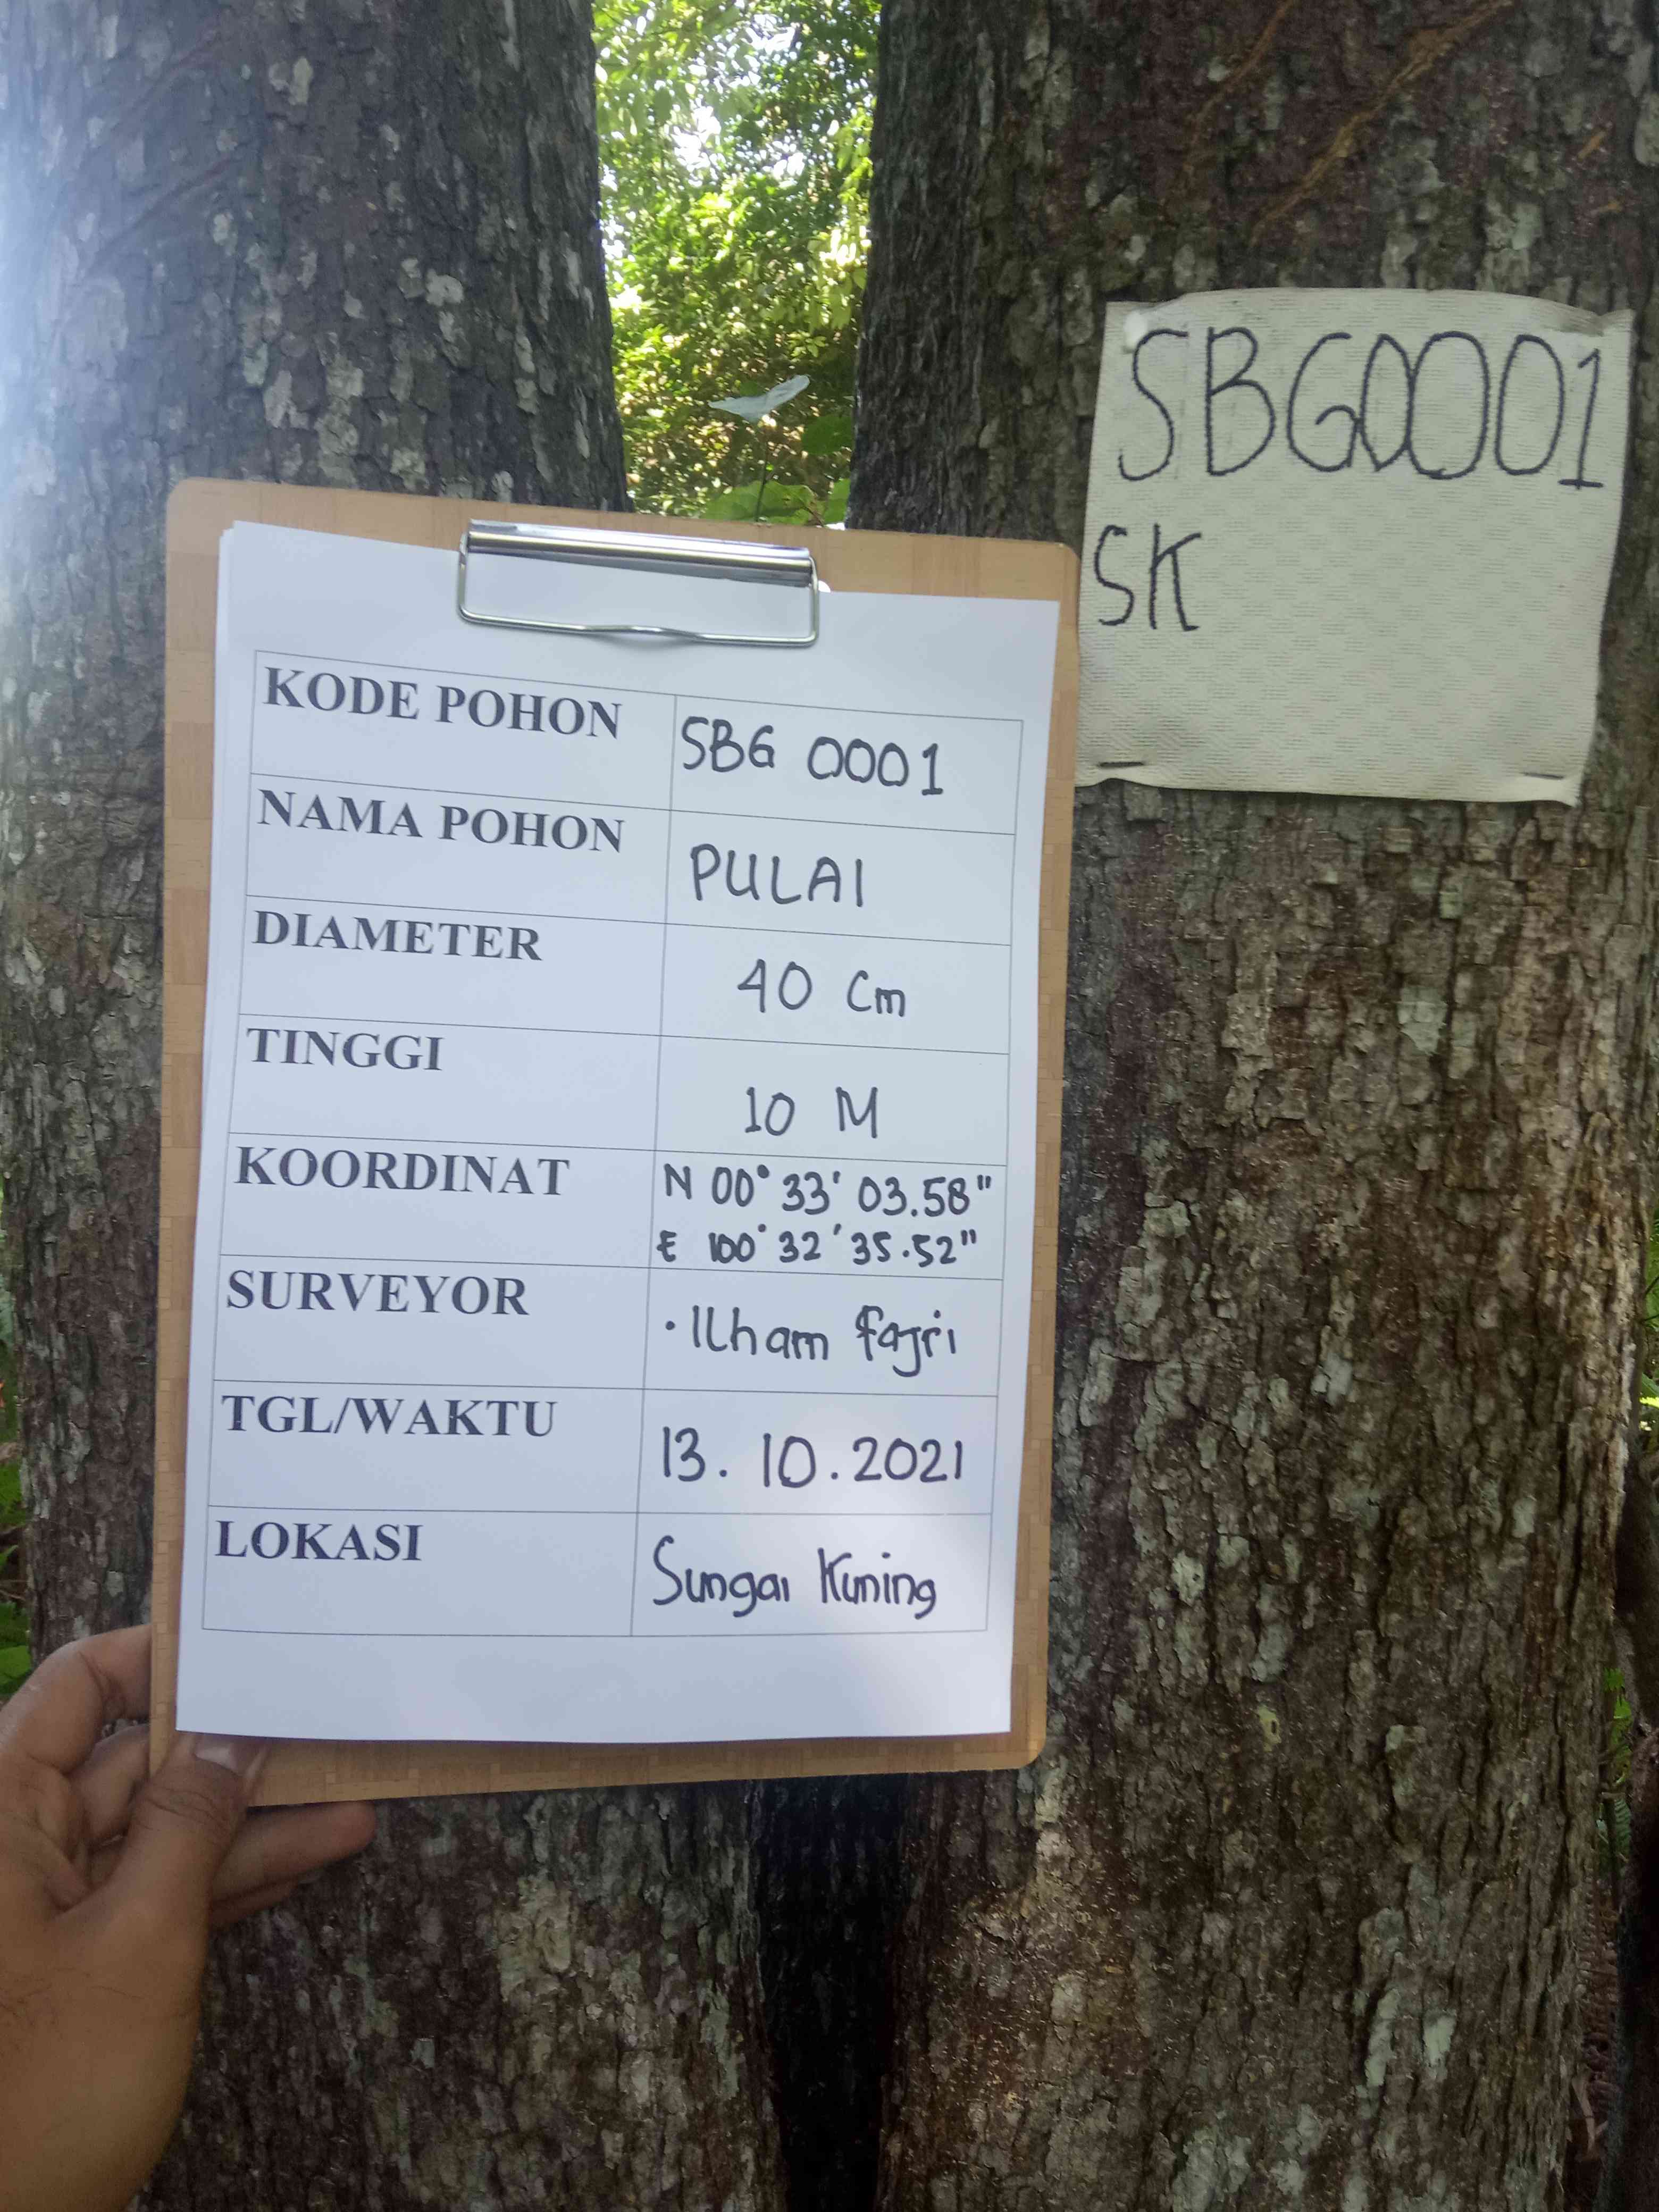 SBG0001
SK
KODE POHON SBG 0001
NAMA POHON PULAI
DIAMETER 40 Cm
TINGGI 10 M
KOORDINAT N 00° 33' 03.58"
E 100° 32' 35.52"
SURVEYOR • Ilham Fajri
TGL/WAKTU 13.10.2021
LOKASI Sungai Kuning